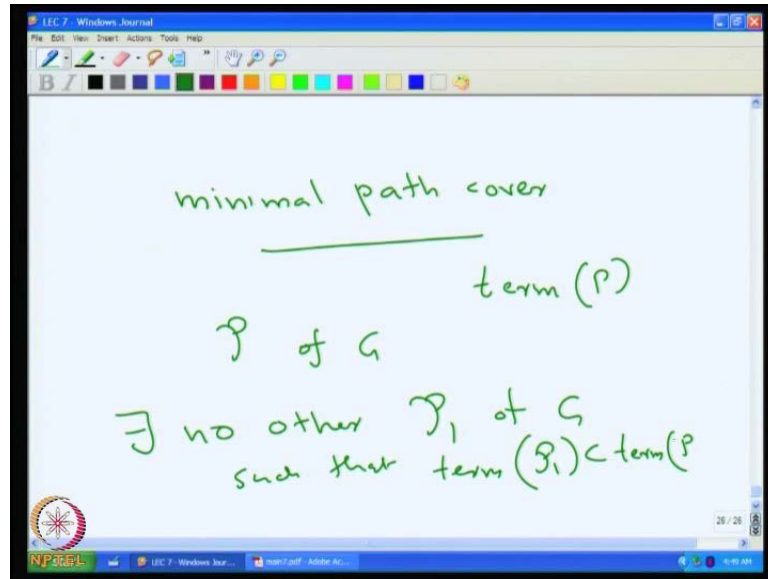 LEC 7 - Windows Journal
File Edit View Insert Actions Tools Help
B I
minimal path cover
term (P)
P of G
∃ no other P₁ of G
such that term (P₁) ⊂ term (P
26 / 26
NPTEL
LEC 7 - Windows Jour...
main7.pdf - Adobe Ac...
4:49 AM